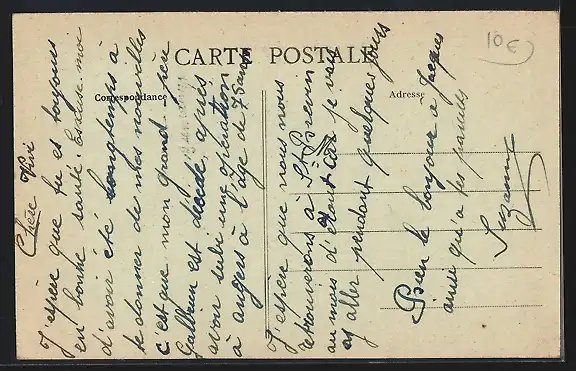 10€
CARTE POSTALE
Correspondance
Adresse
Chère Vivi
J'espère que tu es toujours
en bonne santé. Excuse moi
d'avoir été longtemps à
te donner de mes nouvelles
c'est que mon grand père
est décédé, après
avoir subi une opération
à angers à l'âge de 75 ans
J'espère que nous nous
retrouverons à St Brevin
au mois d'Août car je vais
y aller pendant quelques jours
Bien le bonjour à Jacques
ainsi qu'à tes parents
Suzanne